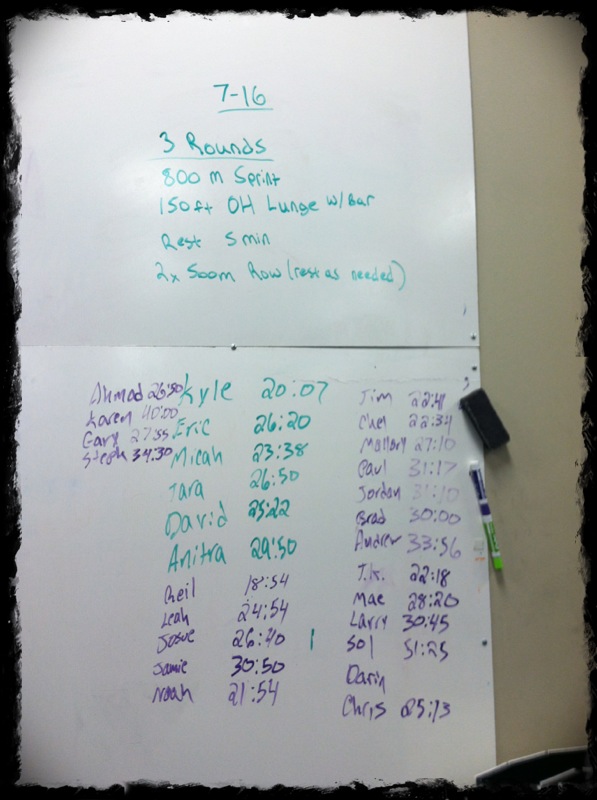 7-16
3 Rounds
800 m Sprint
150ft OH Lunge w/Bar
Rest 5 min
2x 500m Row (rest as needed)
Ahmad 26:50
Karen 40:00
Gary 27:55
Steph 34:30
Kyle 20:07
Eric 26:20
Micah 23:38
Tara 26:50
David 25:22
Anitra 29:50
Neil 18:54
Leah 24:54
Josue 26:40
Jamie 30:50
Noah 21:54
Jim 22:41
Chel 22:34
Mallory 27:10
Paul 31:17
Jordan 31:10
Brad 30:00
Andrew 33:56
T.K. 22:18
Mae 28:20
Larry 30:45
Sol 51:25
Darin
Chris 25:13